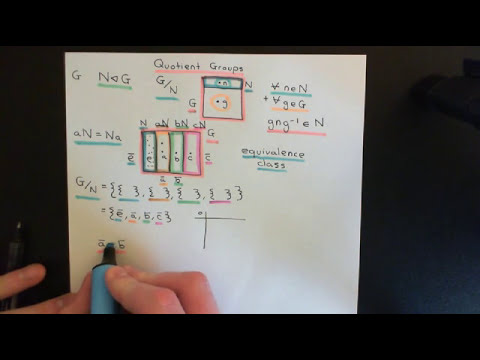 Quotient Groups
G N⊲G G/N
n N
g
G
∀ n∈N
+ ∀ g∈G
gng⁻¹ ∈ N
aN = Na
N aN bN cN
G
ē e a b c c̄
ā b̄
equivalence
class
G/N = {{ }, { }, { }, { }}
= {ē, ā, b̄, c̄}
ā b̄